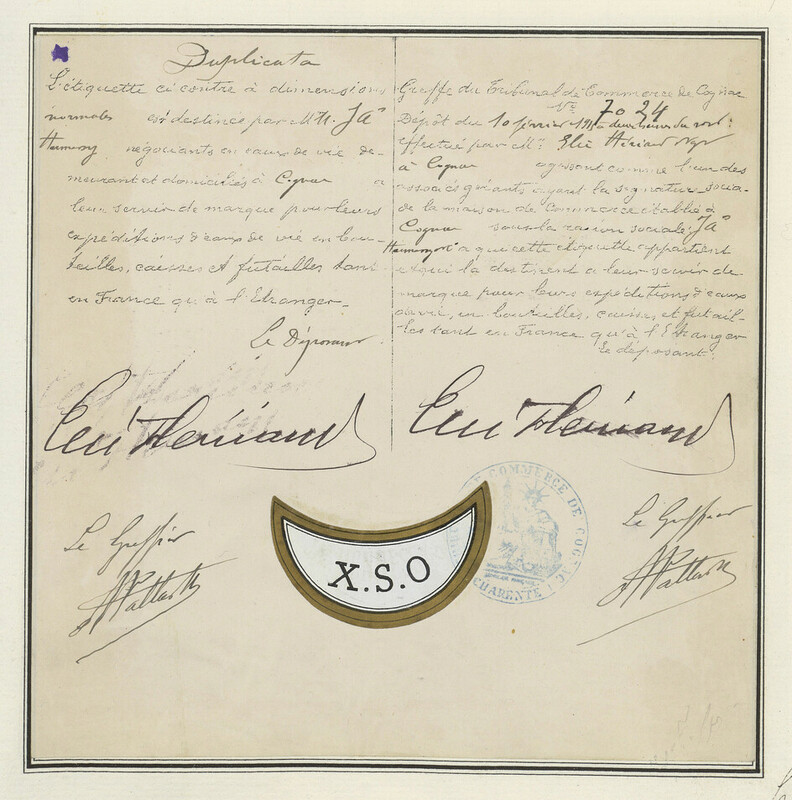 Duplicata
L'étiquette ci contre à dimensions
normales est destinée par MM. Jas
Hennessy négociants en eaux de vie de-
meurant et domiciliés à Cognac a
leur servir de marque pour leurs
expéditions d'eaux de vie en bou-
teilles, caisses et futailles tant
en France qu'à l'Etranger.
Le Déposant
Le Greffier
Greffe du Tribunal de Commerce de Cognac
No 7024
Dépôt du 10 février à deux heures du soir:
effectué par Mr. Elie Hériard
à Cognac agissant comme l'un des
associés gérants ayant la signature socia-
de la maison de Commerce établie à
Cognac sous la raison sociale: Jas
Hennessy a que cette étiquette appartient
et qui la destinent a leur servir de
marque pour leurs expéditions d'eaux
de vie, en bouteilles, caisses, et futail-
les tant en France qu'à l'Etranger
le déposant:
Le Greffier
X.S.O
DE COMMERCE DE COGNAC
CHARENTE